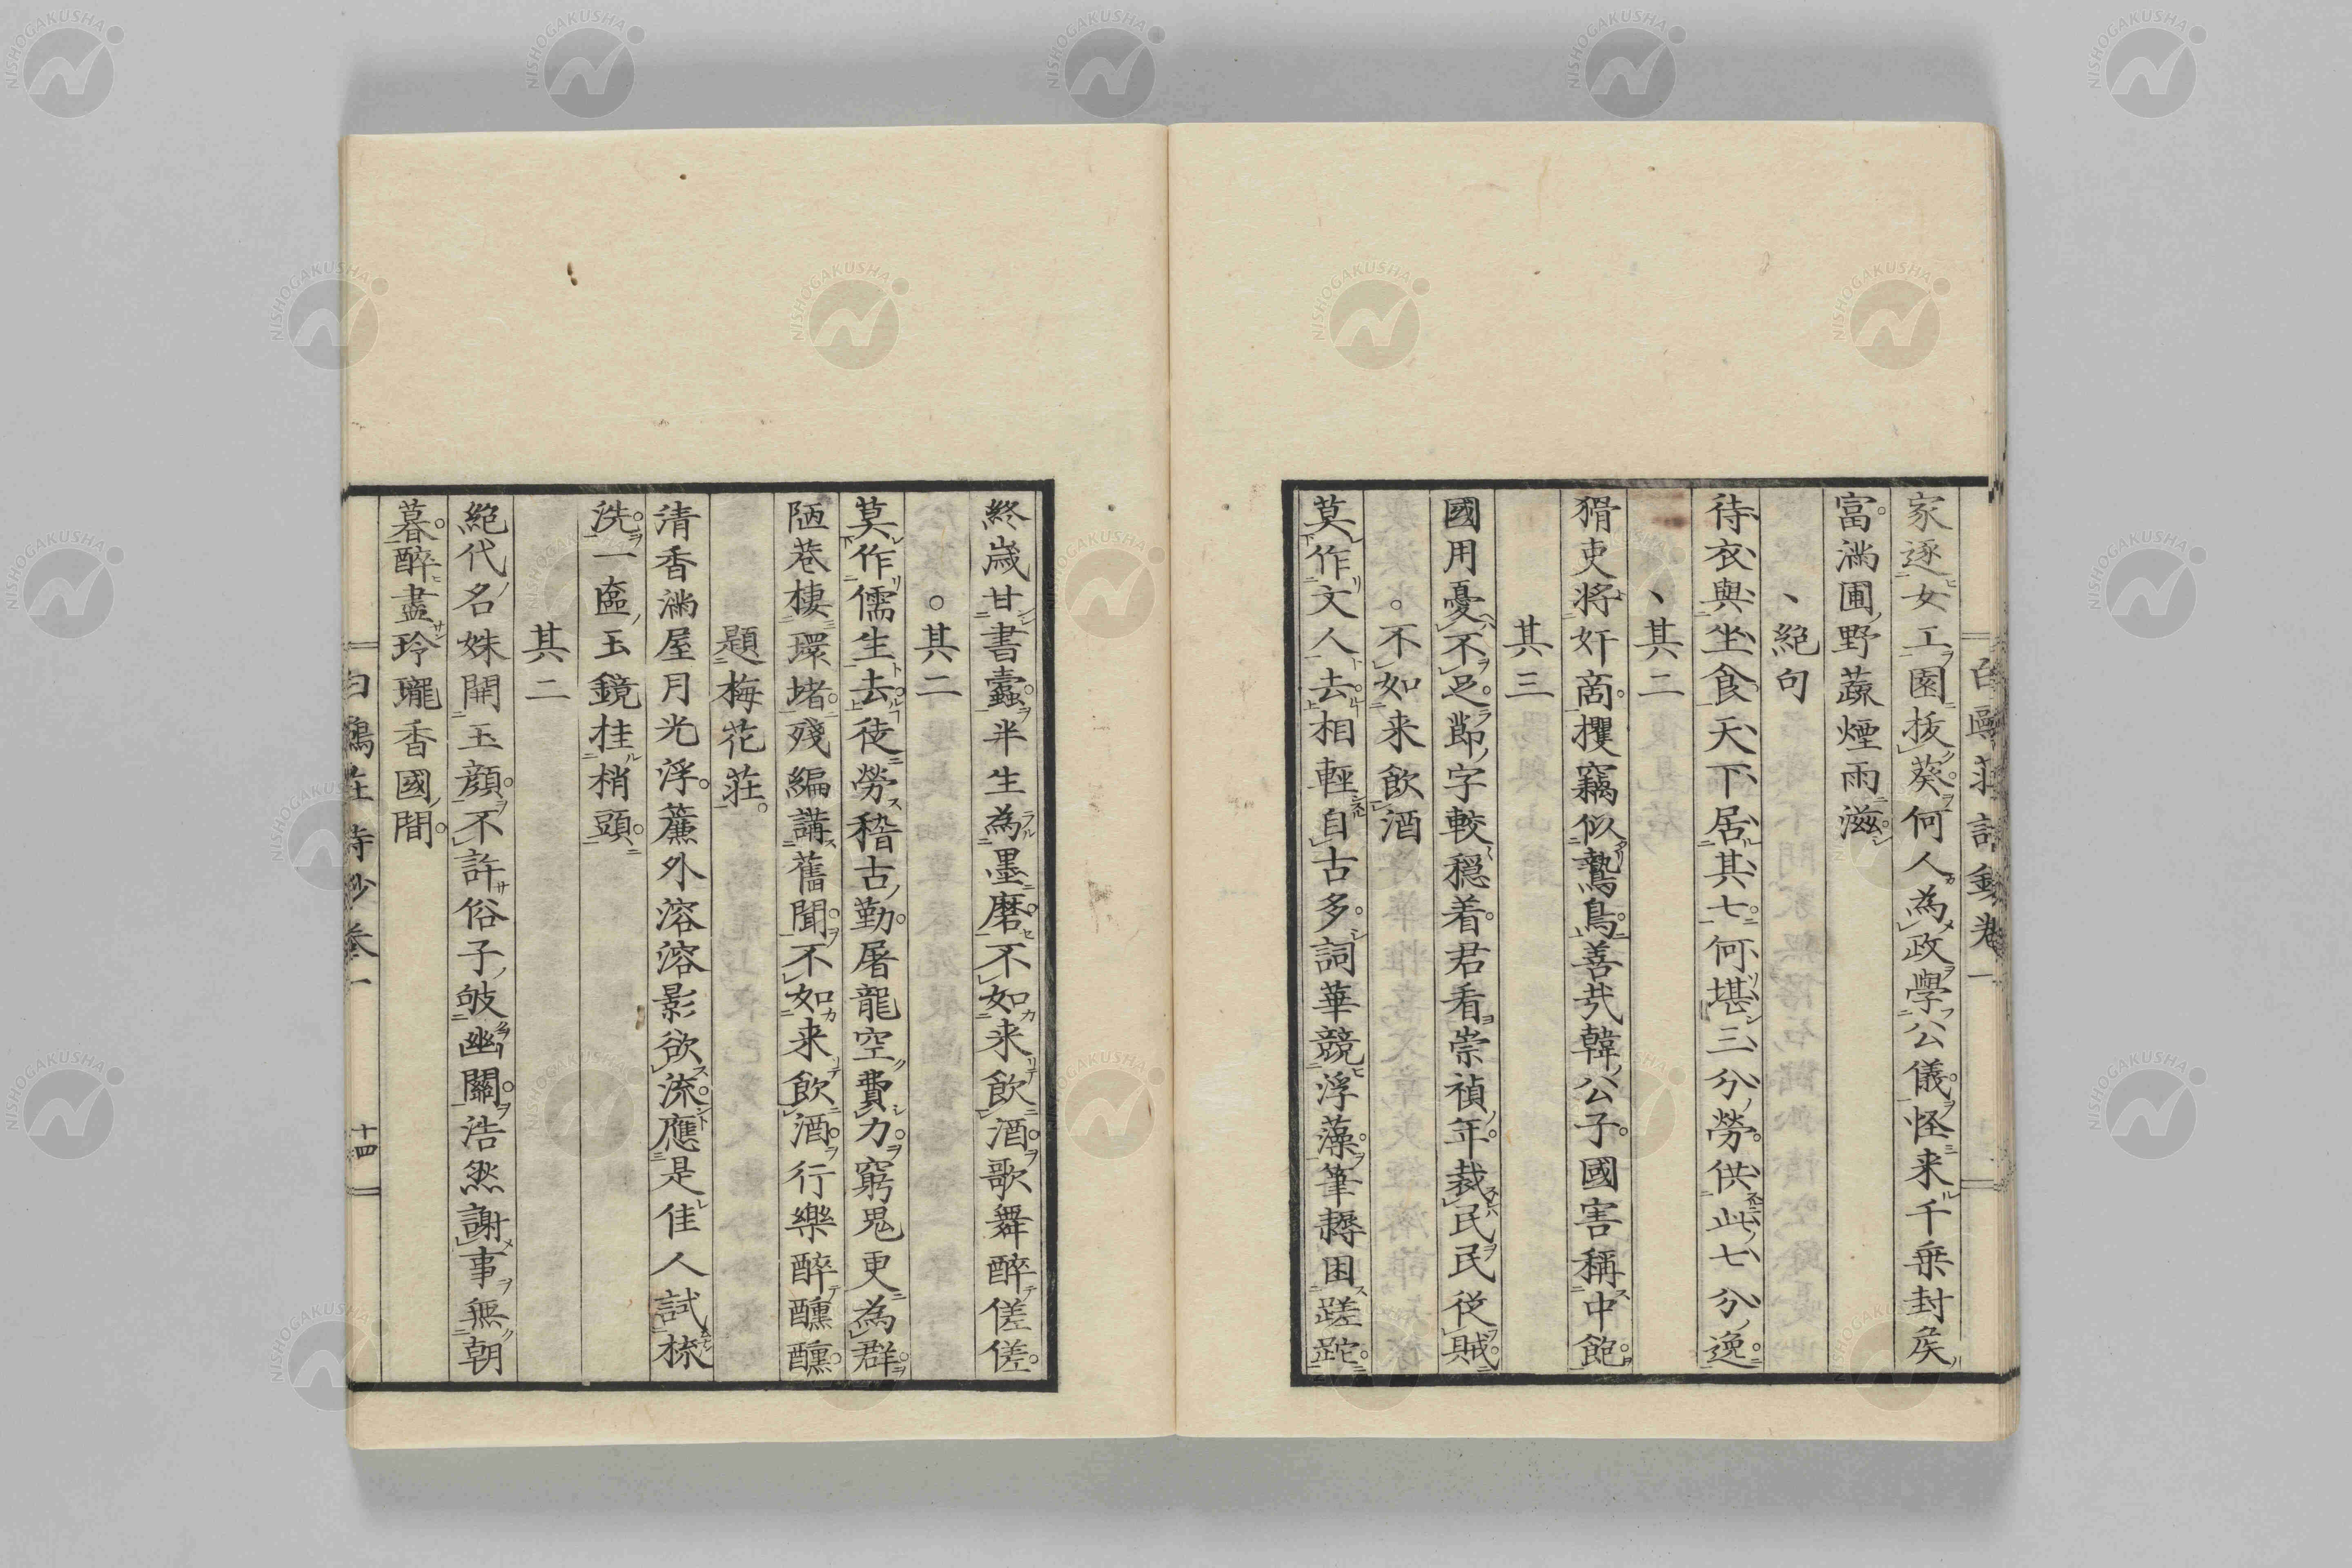 家逐女工園抜葵何人為政學公儀怪来千乗封矦
富滿圃野蔬煙雨滋
絶句
待衣與坐食天下居其七何堪三分勞供此七分逸
其二
猾吏將奸商攫竊似鷙鳥善哉韓公子國害稱中飽
其三
國用憂不足節字較穏着君看崇禎年裁民民從賊
不如来飲酒
莫作文人去相輕自古多詞華競浮藻筆耨困蹉跎
終歳甘書蠹半生為墨磨不如来飲酒歌舞醉傞傞
其二
莫作儒生去徒勞稽古勤屠龍空費力窮鬼更為群
陋巷棲環堵殘編講舊聞不如来飲酒行樂醉醺醺
題梅花莊
清香滿屋月光浮簾外溶溶影欲流應是佳人試梳
洗一奩玉鏡桂梢頭
其二
絶代名姝開玉顔不許俗子皷幽關浩然謝事無朝
暮醉盡玲瓏香國間
白鷗莊詩鈔卷一
十四